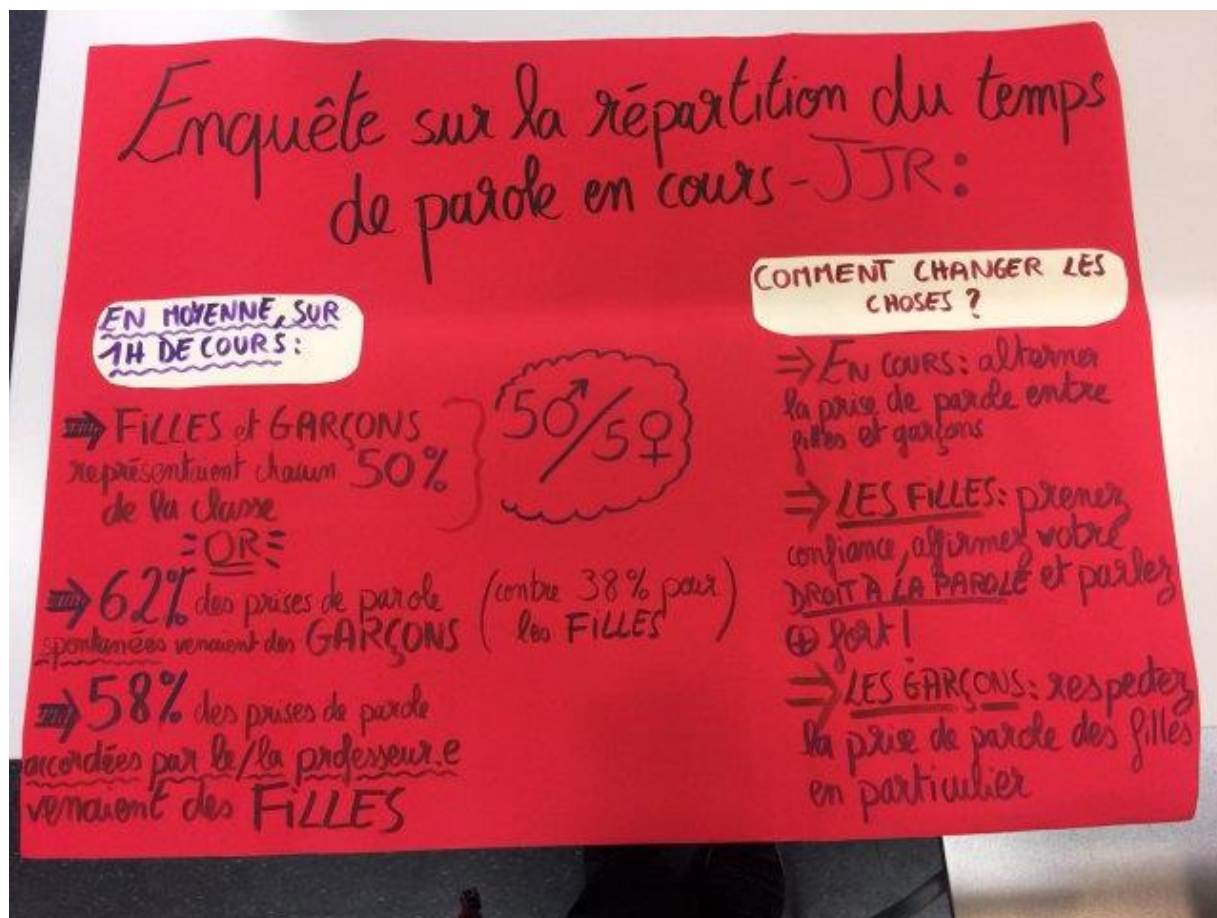 Enquête sur la répartition du temps
de parole en cours - JJR :
EN MOYENNE, SUR
1H DE COURS :
⇒ FILLES et GARÇONS
représentaient chacun 50%
de la classe
= OR =
⇒ 62% des prises de parole
spontanées venaient des GARÇONS
(contre 38% pour
les FILLES)
⇒ 58% des prises de parole
accordées par le/la professeur.e
venaient des FILLES
50♂/50♀
COMMENT CHANGER LES
CHOSES ?
⇒ EN COURS : alterner
la prise de parole entre
filles et garçons
⇒ LES FILLES : prenez
confiance, affirmez votre
DROIT À LA PAROLE et parlez
⊕ fort !
⇒ LES GARÇONS : respectez
la prise de parole des filles
en particulier